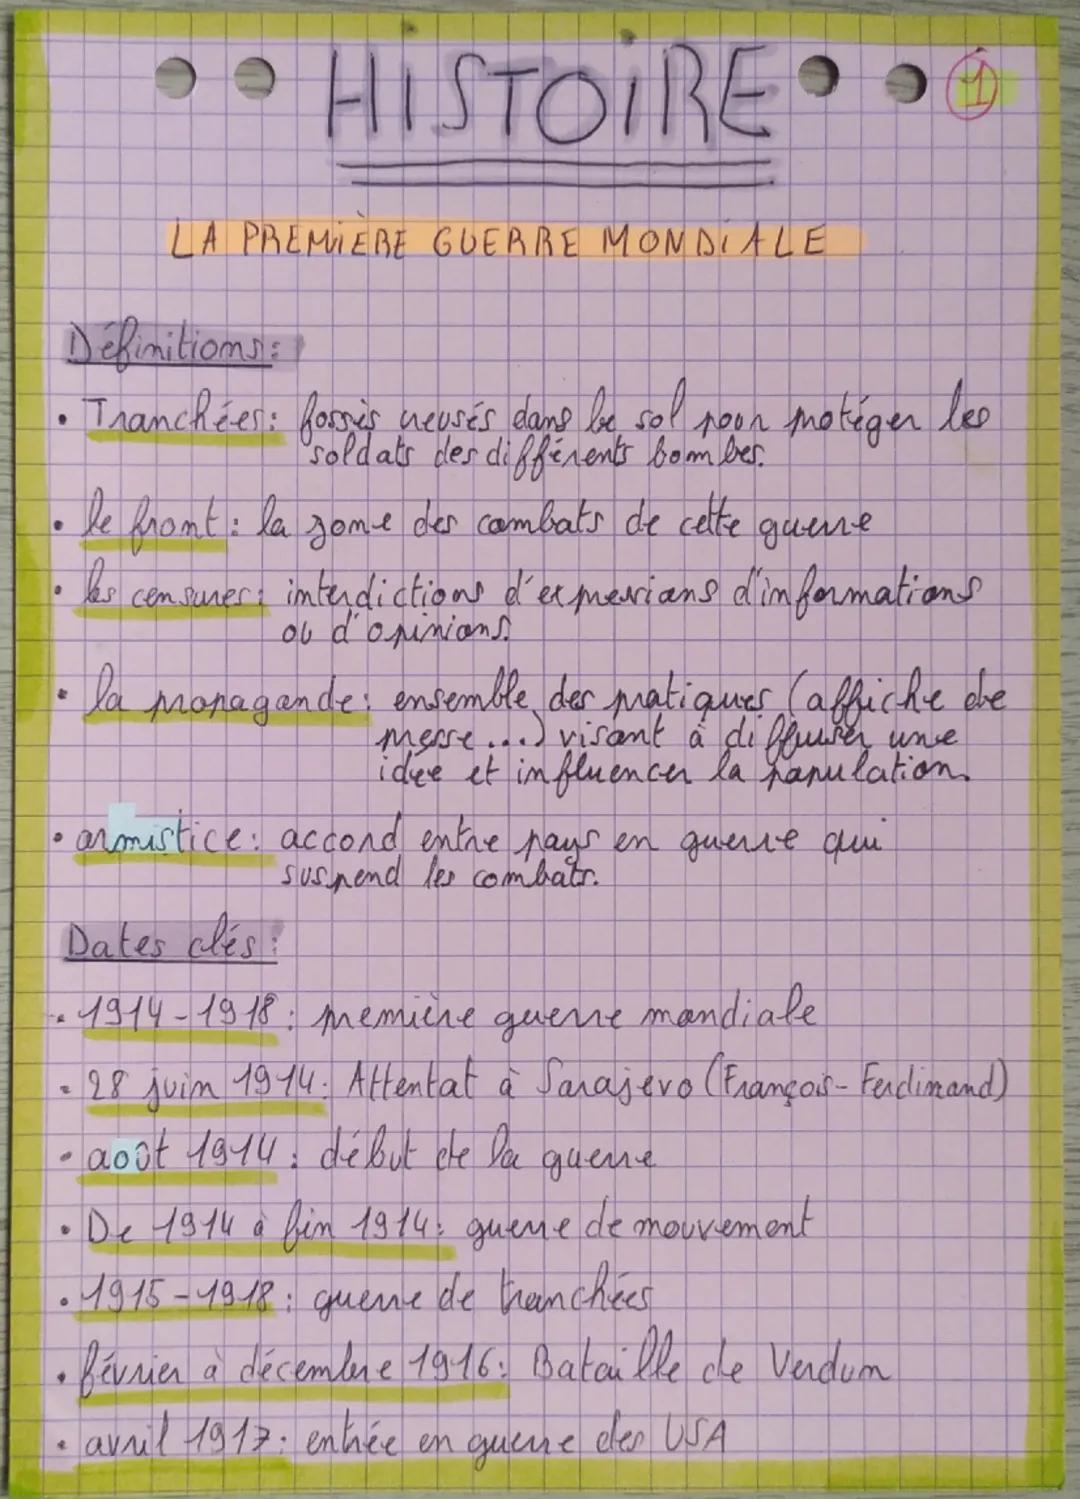 HISTOIRE
1
LA PREMIÈRE GUERRE MONDIALE
Définitions:
• Tranchées: fossés creusés dans le sol pour protéger les
soldats des différents bombes.
• le front: la zone des combats de cette guerre
• les censures: interdictions d'expressions d'informations
ou d'opinions.
• la propagande: ensemble des pratiques (affiche de
presse...) visant à diffuser une
idée et influencer la population.
• armistice: accord entre pays en guerre qui
suspend les combats.
Dates clés:
• 1914-1918: première guerre mondiale
• 28 juin 1914: Attentat à Sarajevo (François-Ferdinand)
• août 1914: début de la guerre
• De 1914 à fin 1914: guerre de mouvement
• 1915-1918: guerre de tranchées
• février à décembre 1916: Bataille de Verdun
• avril 1917: entrée en guerre des USA